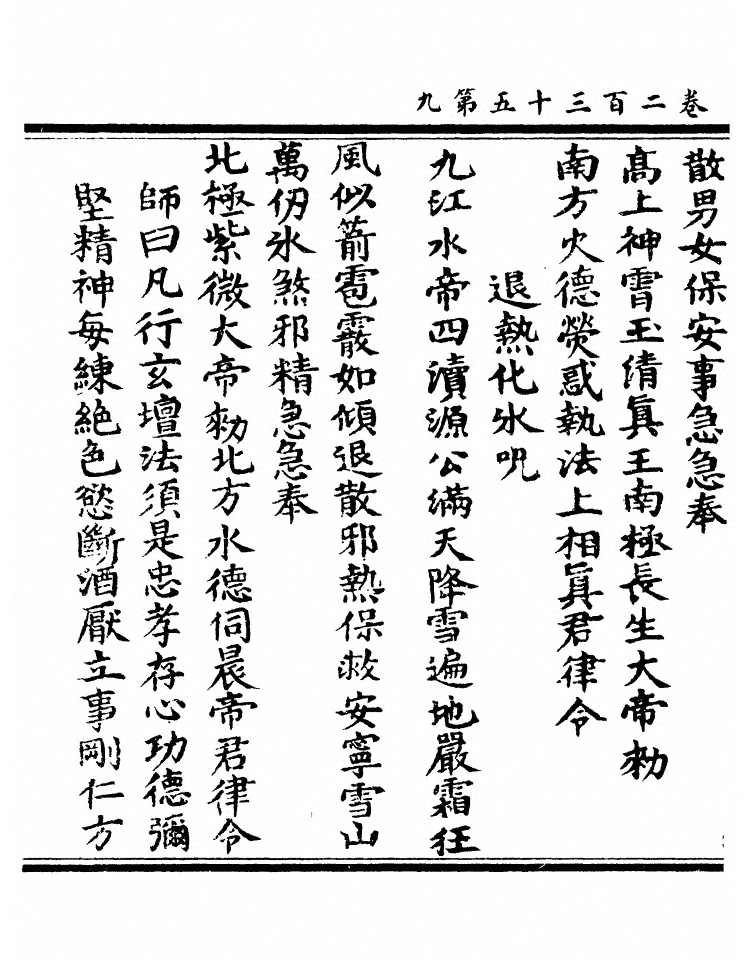 卷二百三十五第九
散男女保安事急急奉
髙上神霄玉清眞王南極長生大帝勑
南方火德熒惑執法上相眞君律令
退熱化氷呪
九江水帝四瀆源公滿天降雪遍地嚴霜狂
風似箭雹霰如傾退散邪熱保救安寧雪山
萬仞氷煞邪精急急奉
北極紫微大帝勑北方水德伺晨帝君律令
師曰凡行玄壇法須是忠孝存心功德彌
堅精神每練絶色慾斷酒厭立事剛仁方